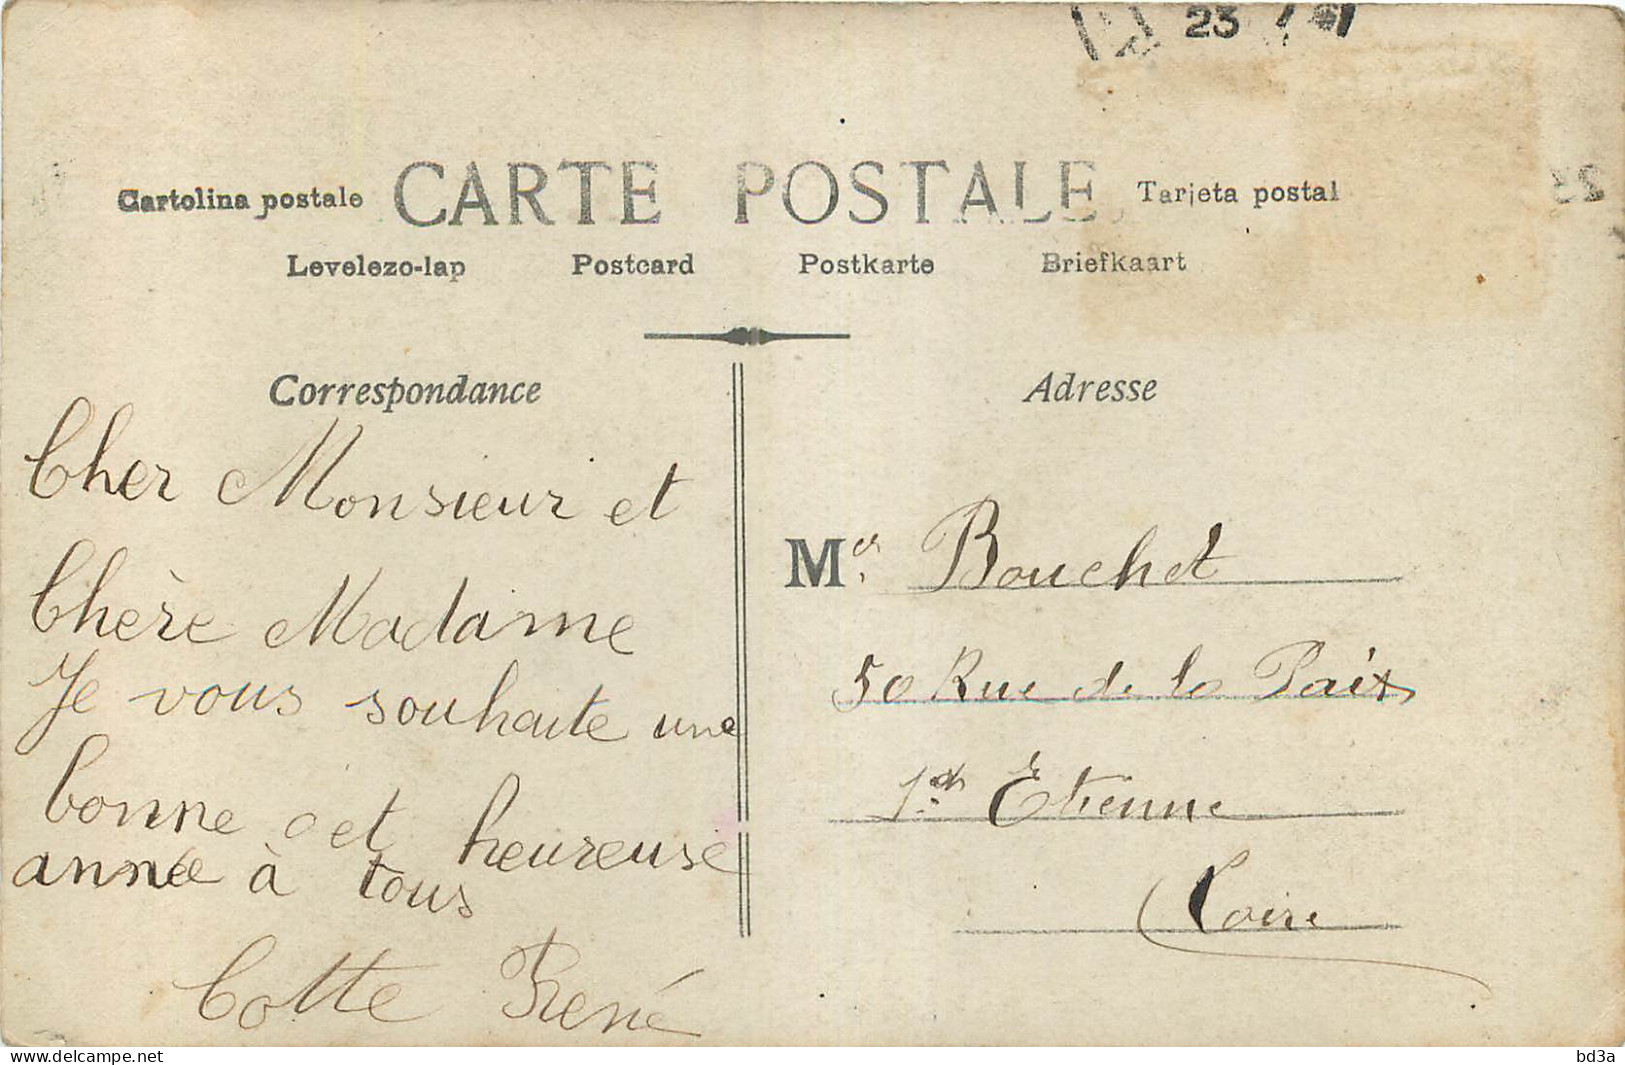 23
Cartolina postale CARTE POSTALE Tarjeta postal
Levelezo-lap Postcard Postkarte Briefkaart
Correspondance
Cher Monsieur et
Chère Madame
Je vous souhaite une
bonne et heureuse
année à tous
Cotte René
Adresse
Mr Bouchet
50 Rue de la Paix
St Etienne
Loire
Delcampe.net
bd3a